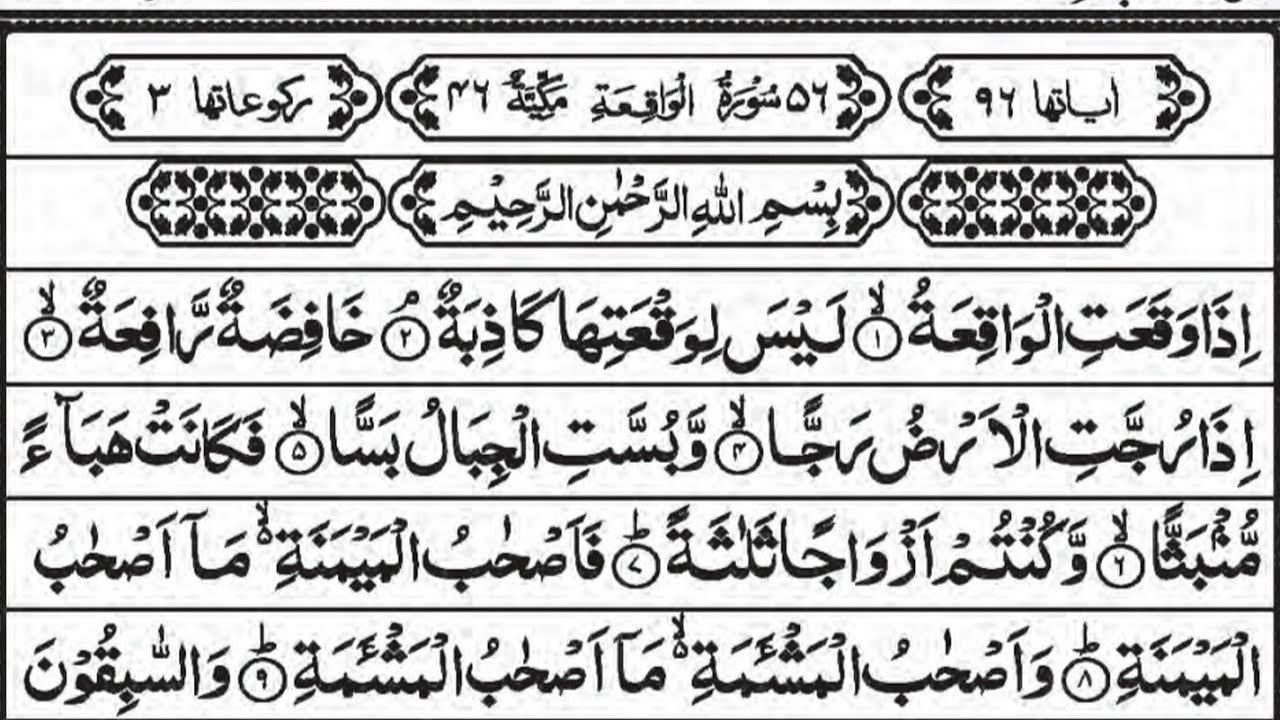 اٰیاتھا ۹۶ ۵۶ سُوْرَۃُ الْوَاقِعَةِ مَكِّيَّةٌ ۴۶ رکوعاتھا ۳
بِسْمِ اللهِ الرَّحْمٰنِ الرَّحِيْمِ
اِذَا وَقَعَتِ الْوَاقِعَةُ ۙ۝۱ لَيْسَ لِوَقْعَتِهَا كَاذِبَةٌ ۘ۝۲ خَافِضَةٌ رَّافِعَةٌ ۙ۝۳
اِذَا رُجَّتِ الْاَرْضُ رَجًّا ۙ۝۴ وَّبُسَّتِ الْجِبَالُ بَسًّا ۙ۝۵ فَكَانَتْ هَبَآءً
مُّنْۢبَثًّا ۙ۝۶ وَّكُنْتُمْ اَزْوَاجًا ثَلٰثَةً ؕ۝۷ فَاَصْحٰبُ الْمَيْمَنَةِ ۙ۬ مَاۤ اَصْحٰبُ
الْمَيْمَنَةِ ؕ۝۸ وَاَصْحٰبُ الْمَشْـَٔمَةِ ۙ۬ مَاۤ اَصْحٰبُ الْمَشْـَٔمَةِ ؕ۝۹ وَالسّٰبِقُوْنَ